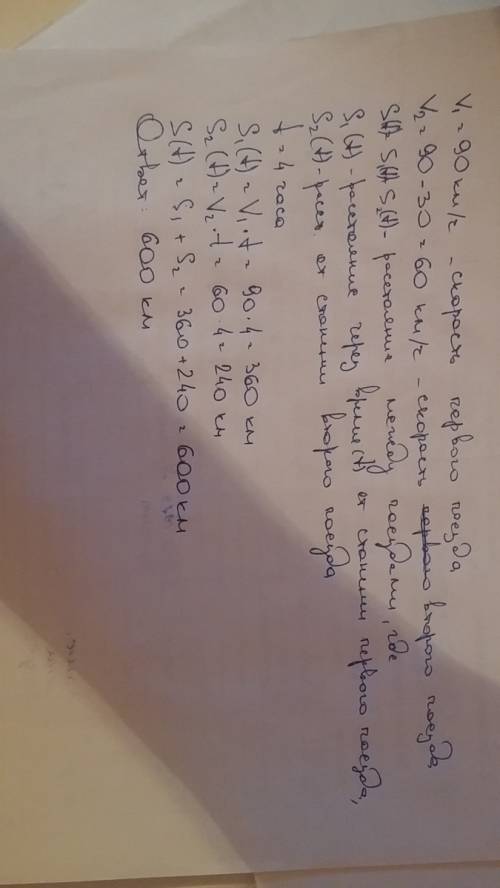 V₁ = 90 км/ч - скорость первого поезда
V₂ = 90 - 30 = 60 км/ч - скорость первого второго поезда
S(t) = S₁(t) + S₂(t) - расстояние между поездами, где
S₁(t) - расстояние через время (t) от станции первого поезда,
S₂(t) - расст. от станции второго поезда
t = 4 часа
S₁(t) = V₁ · t = 90 · 4 = 360 км
S₂(t) = V₂ · t = 60 · 4 = 240 км
S(t) = S₁ + S₂ = 360 + 240 = 600 км
Ответ: 600 км